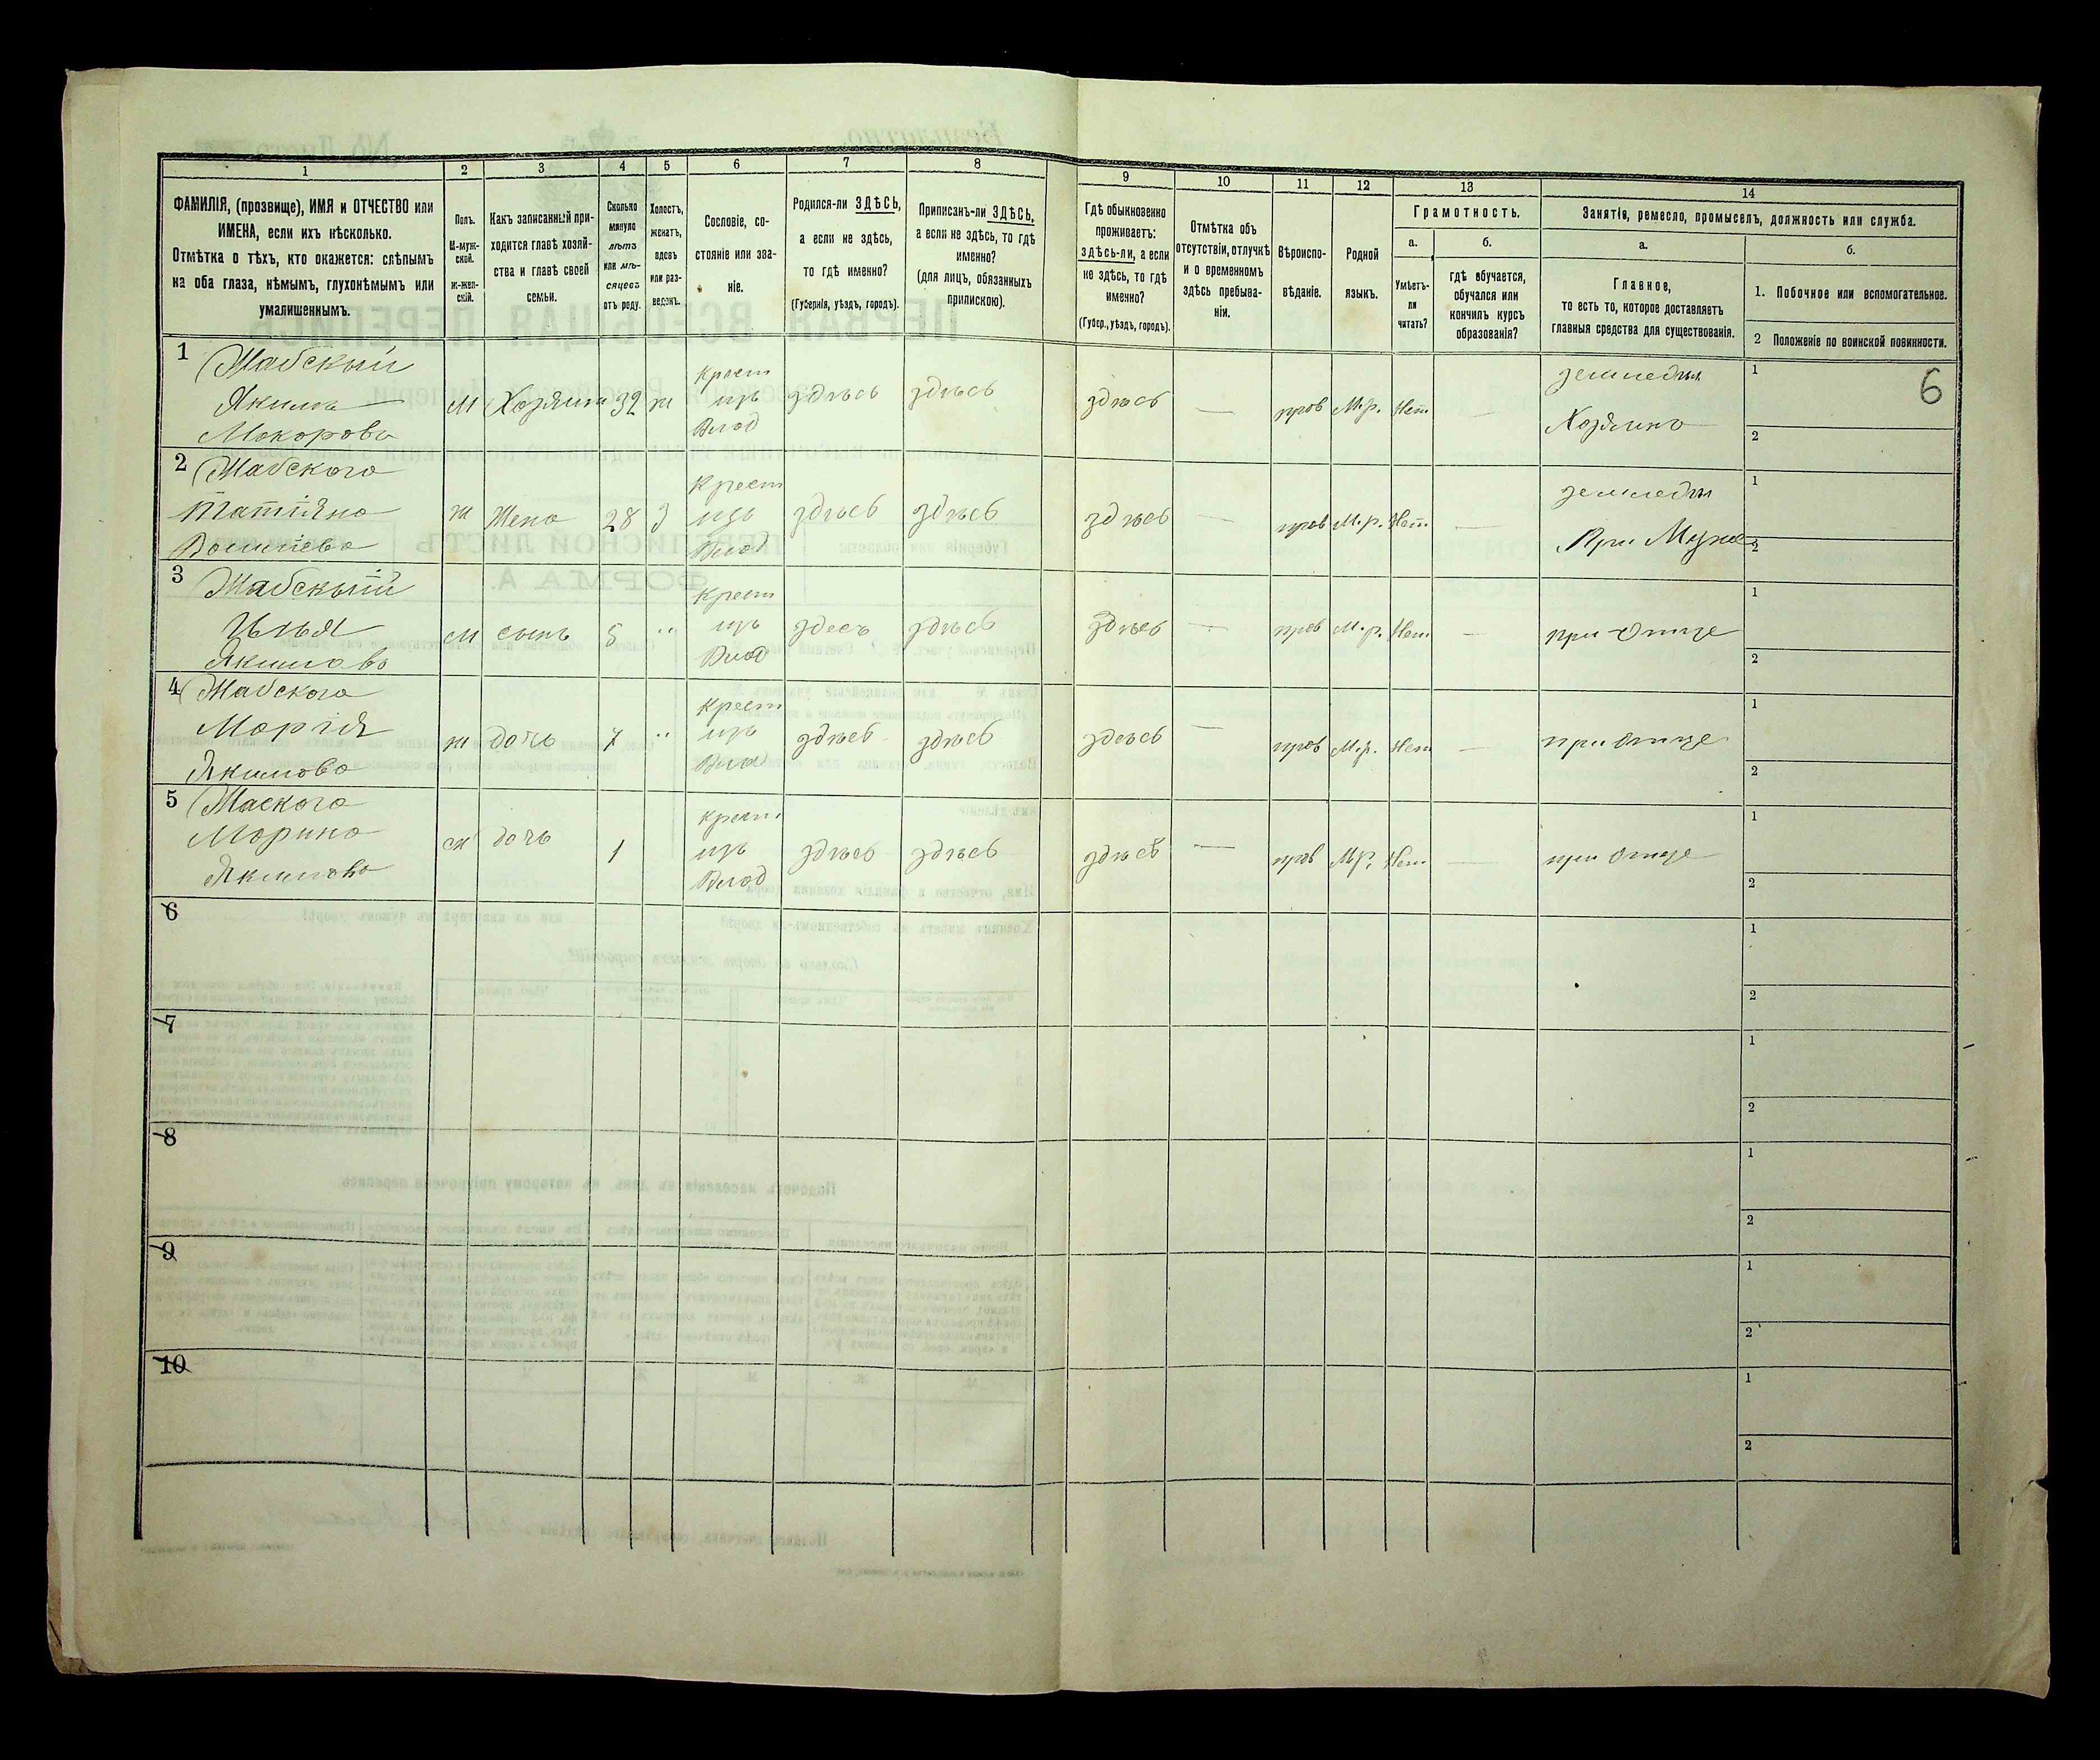 1 2 3 4 5 6 7 8 9 10 11 12 13 14
ФАМИЛІЯ, (прозвище), ИМЯ и ОТЧЕСТВО или
ИМЕНА, если ихъ нѣсколько.
Отмѣтка о тѣхъ, кто окажется: слѣпымъ
на оба глаза, нѣмымъ, глухонѣмымъ или
умалишеннымъ.
Полъ.
М-муж-
ской.
Ж-жен-
скій.
Какъ записанный при-
ходится главѣ хозяй-
ства и главѣ своей
семьи.
Сколько
минуло
лѣтъ
или мѣ-
сяцевъ
отъ роду.
Холостъ,
женатъ,
вдовъ
или раз-
веденъ.
Сословіе, со-
стояніе или зва-
ніе.
Родился-ли ЗДѢСЬ,
а если не здѣсь,
то гдѣ именно?
(Губернія, уѣздъ, городъ).
Приписанъ-ли ЗДѢСЬ,
а если не здѣсь, то гдѣ
именно?
(для лицъ, обязанныхъ
припискою).
Гдѣ обыкновенно
проживаетъ:
здѣсь-ли, а если
не здѣсь, то гдѣ
именно?
(Губер., уѣздъ, городъ).
Отмѣтка объ
отсутствіи, отлучкѣ
и о временномъ
здѣсь пребыва-
ніи.
Вѣроиспо-
вѣданіе.
Родной
языкъ.
Грамотность.
а.
Умѣетъ-
ли
читать?
б.
гдѣ обучается,
обучался или
кончилъ курсъ
образованія?
Занятія, ремесло, промыселъ, должность или служба.
а.
Главное,
то есть то, которое доставляетъ
главныя средства для существованія.
б.
1. Побочное или вспомогательное.
2 Положеніе по воинской повинности.
6
1 Жабскый
Якимъ
Мокорова
м Хозяинъ 32 ж
Крест
изъ
Влод
здѣсь здѣсь здѣсь — пров М.р. Нет —
земледѣл
Хозяинъ
1
2
2 Жабского
Татіяна
ж Жена 28 З
Крест
изъ
Влод
здѣсь здѣсь здѣсь — пров М.р. Нет —
земледѣл
При Муже
1
2
3 Жабскый
Илья
Якимова
м сынъ 5 "
Крест
изъ
Влод
здесъ здѣсь здѣсь — пров М.р. Нет —
при Отце
1
2
4 Жабского
Марія
Якимова
ж дочь 7 "
Крест
изъ
Влод
здѣсь здѣсь здѣсь — пров М.р. Нет —
при Отце
1
2
5 Жаского
Марина
Якимова
ж дочь 1
Крест
изъ
Влод
здѣсь здѣсь здѣсь — пров М.р. Нет —
при Отце
1
2
6
1
2
7
1
2
8
1
2
9
1
2
10
1
2